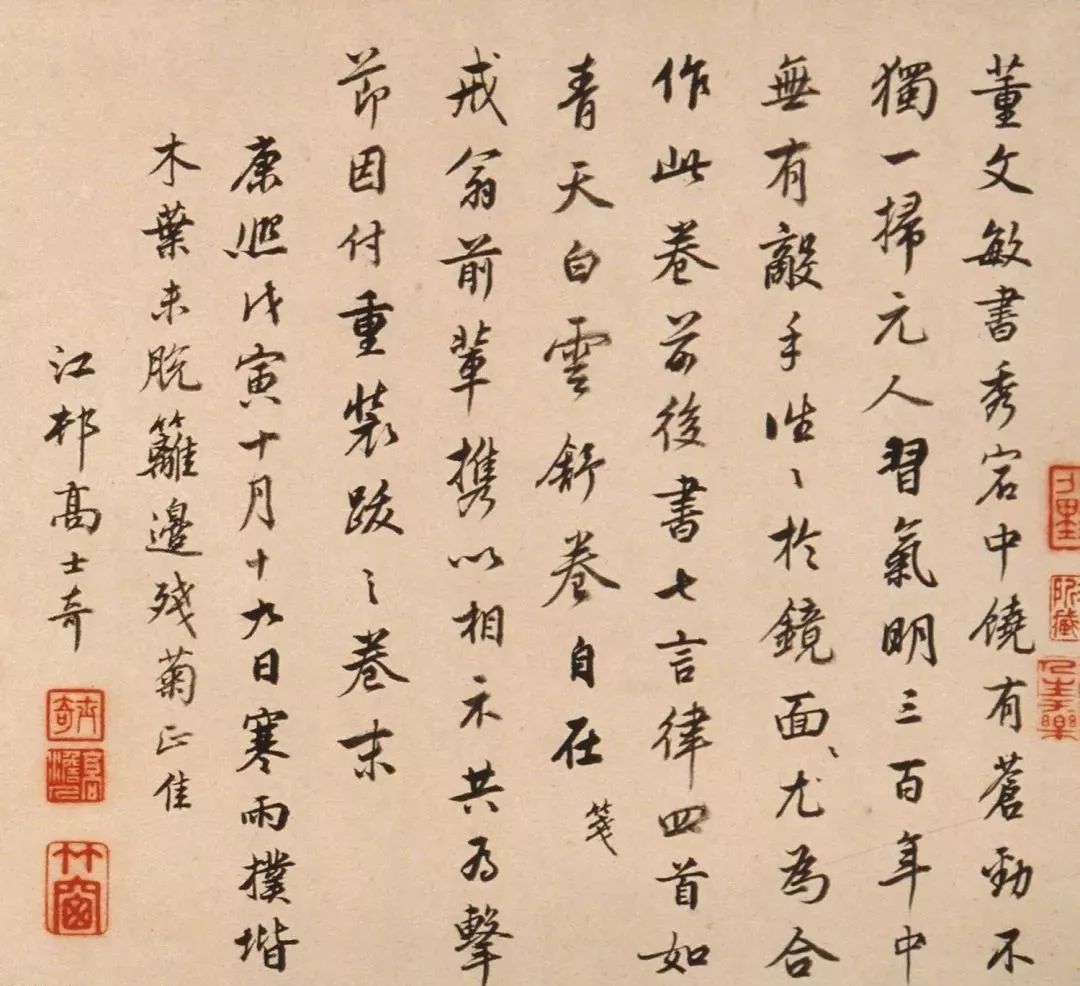 董文敏書秀宕中饒有蒼勁不
獨一掃元人習氣明三百年中
無有敵手往〻於鏡面尤為合
作此卷前後書七言律四首如
青天白雲舒卷自在
箋
戒翁前輩攜以相示共為擊
節因付重裝跋之卷末
康熙戊寅十月十九日寒雨撲堦
木葉未脫籬邊殘菊正佳
江邨高士奇
士奇
高澹人
竹窗